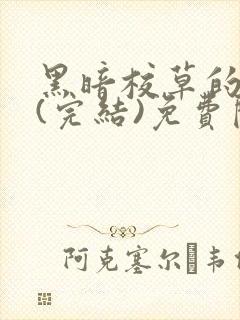 黑暗校草的
(完結)免費
阿克塞尔�韦